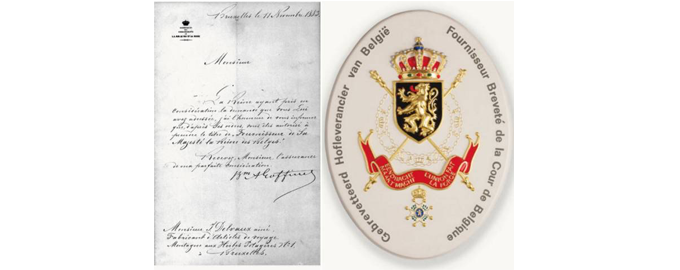 Bruxelles le 11 Novembre 1883.
Monsieur
La Reine ayant pris en
considération la demande que vous lui
avez adressée, j'ai l'honneur de vous informer
que, d'après Ses ordres, vous êtes autorisé à
prendre le titre de Fournisseur de Sa
Majesté la Reine des Belges.
Recevez, Monsieur, l'assurance
de ma parfaite considération.
Bon Goffinet
Monsieur J. Delvaux aîné
Fabricant d'Articles de voyage,
Montagne aux Herbes Potagères N° 1.
à Bruxelles.
Gebrevetteerd Hofleverancier van België
Fournisseur Breveté de la Cour de Belgique
EENDRACHT MAAKT MACHT
L'UNION FAIT LA FORCE